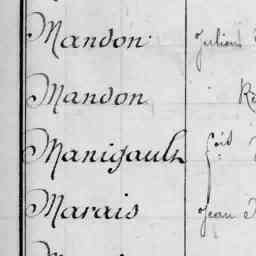 Mandon Julien
Mandon
Manigault fois
Marais Jean